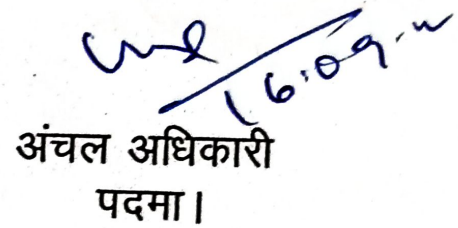 16.09.
अंचल अधिकारी
पदमा।